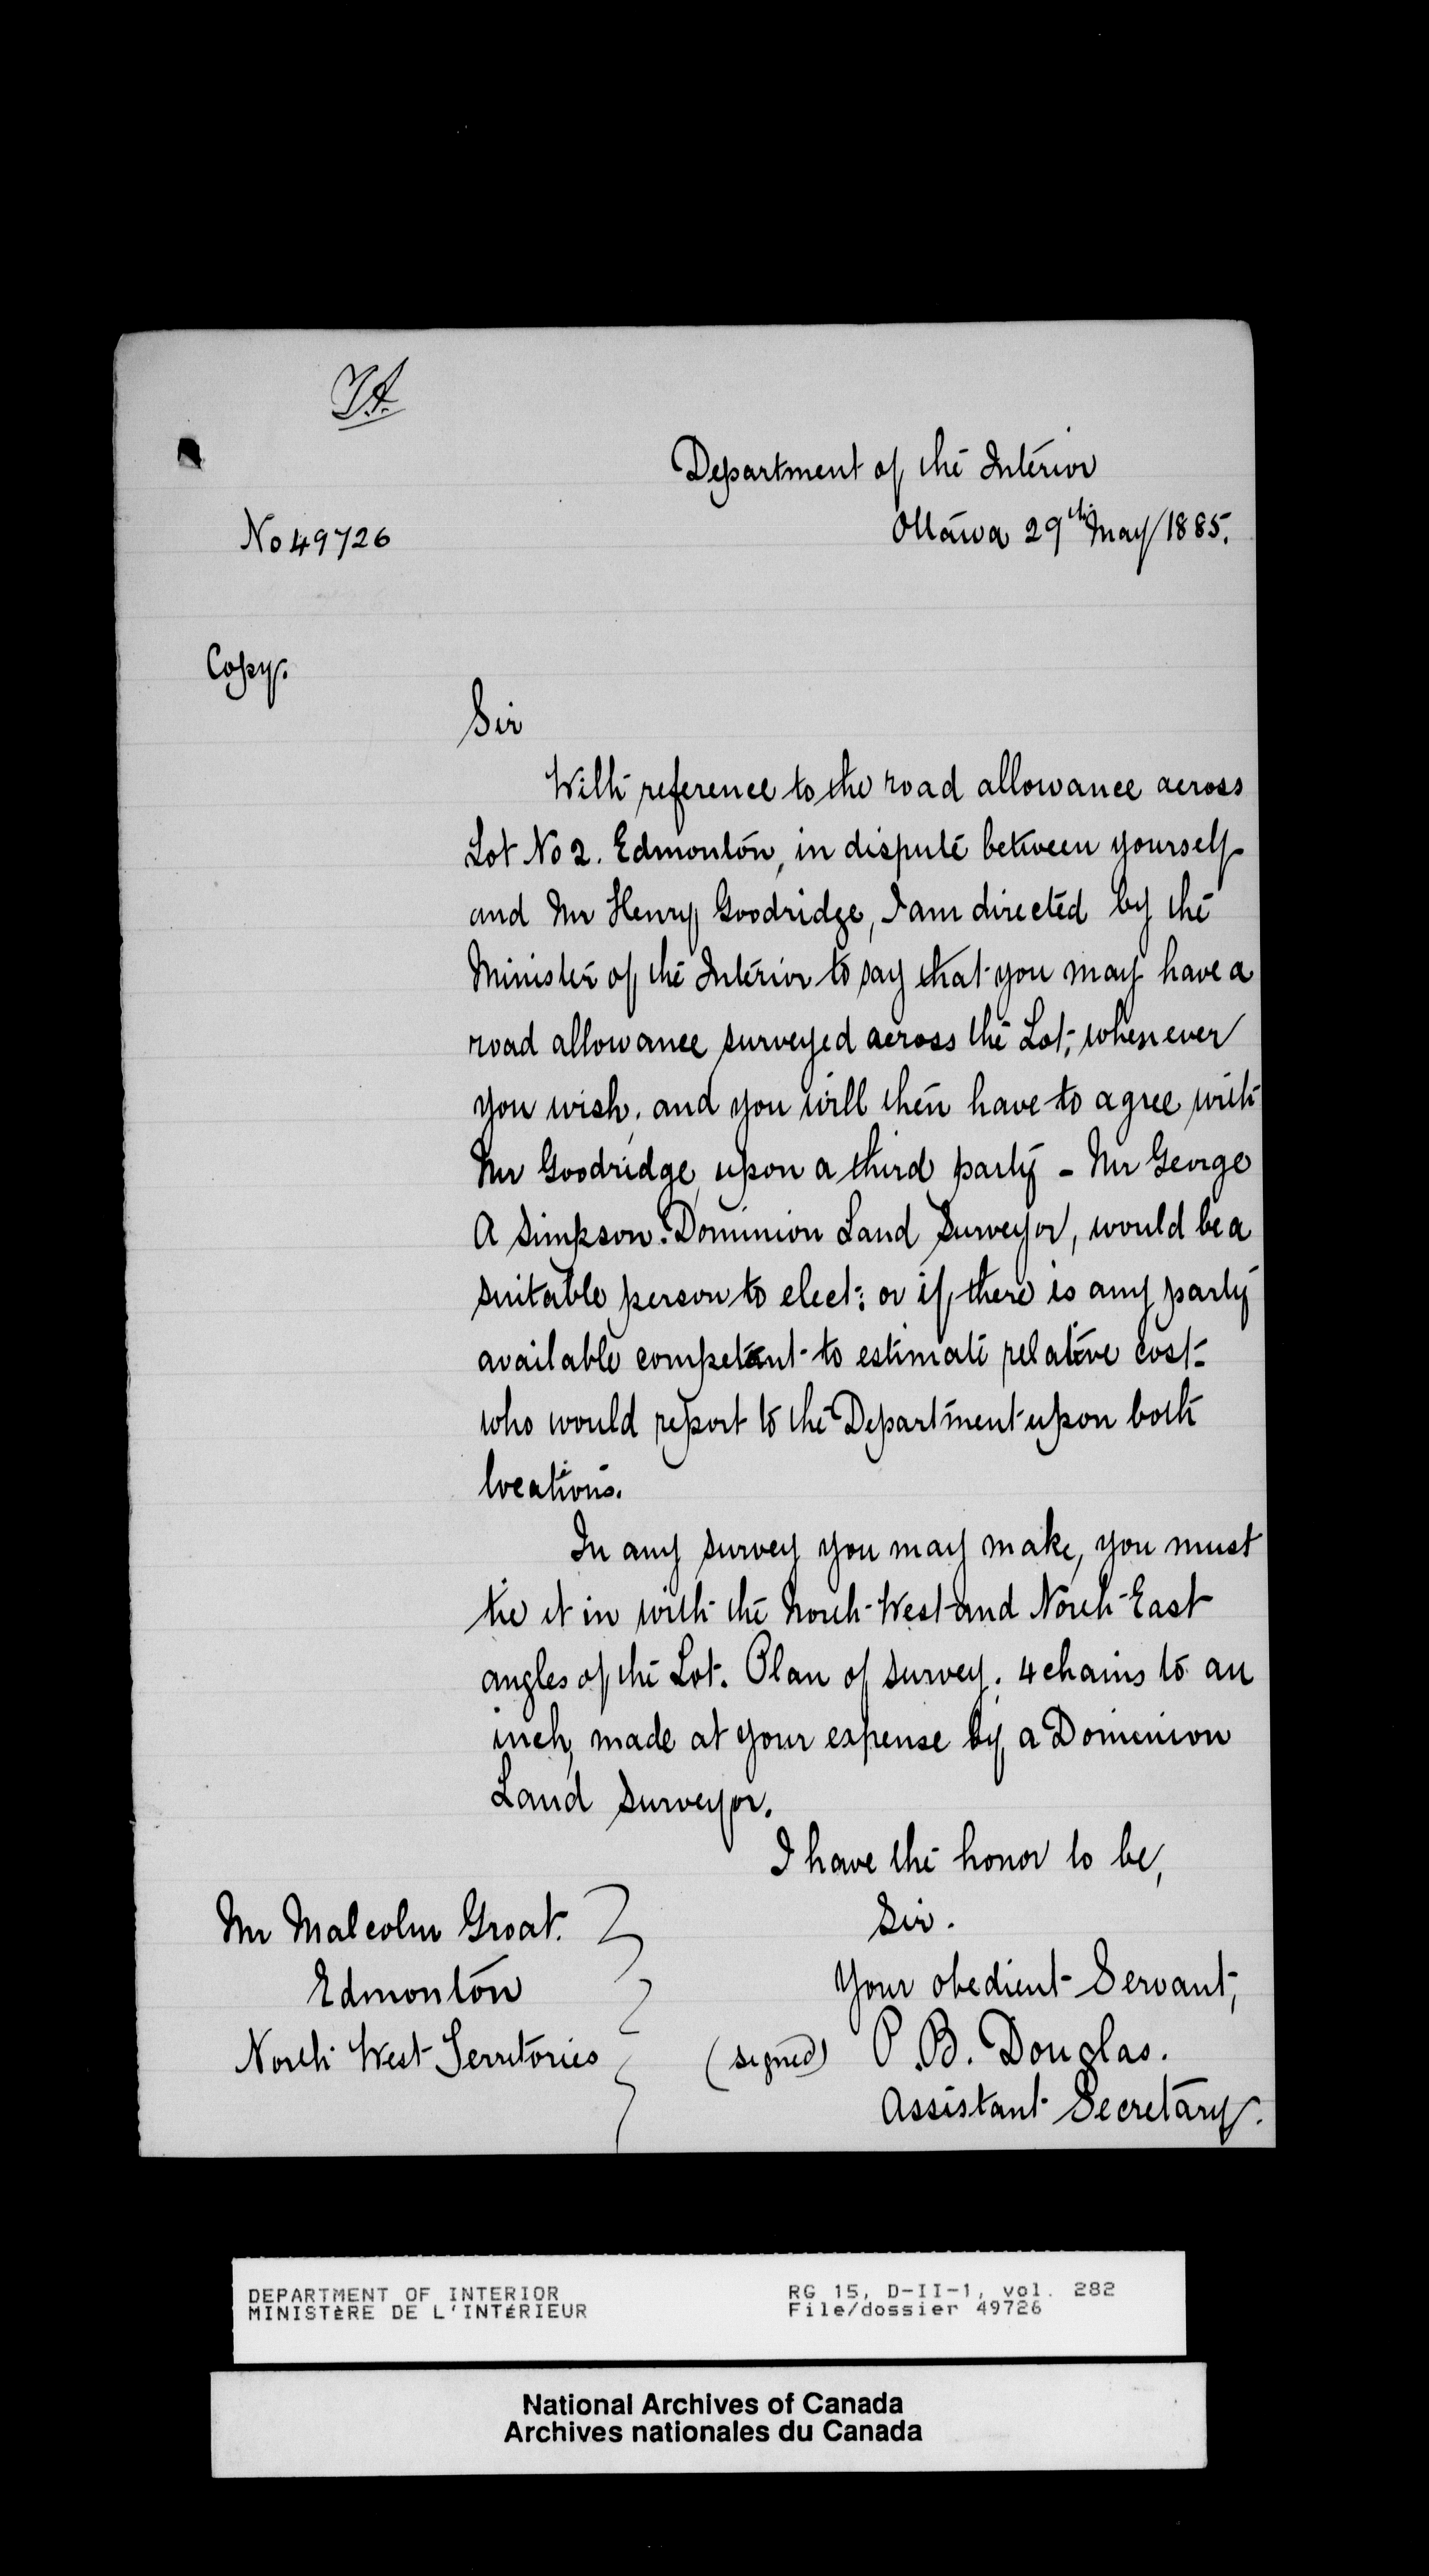 Department of the Interior
No 49726
Ottawa 29th May 1885.
Copy.
Sir
With reference to the road allowance across
Lot No 2. Edmonton, in dispute between yourself
and Mr Henry Goodridge, I am directed by the
Minister of the Interior to say that you may have a
road allowance surveyed across the Lot, whenever
you wish, and you will then have to agree with
Mr Goodridge, upon a third party - Mr George
A Simpson. Dominion Land Surveyor, would be a
suitable person to elect: or if, there is any party
available competant to estimate relative cost-
who would report to the Department upon both
locations.
In any survey you may make, you must
tie it in with the North-West and North-East
angles of the Lot. Plan of survey. 4 chains to an
inch, made at your expense by a Dominion
Land Surveyor.
I have the honor to be,
Sir.
Your obedient Servant,
(signed) P. B. Douglas.
Assistant Secretary.
Mr Malcolm Groat.
Edmonton
North West Territories
DEPARTMENT OF INTERIOR
MINISTÈRE DE L'INTÉRIEUR
RG 15, D-II-1, vol. 282
File/dossier 49726
National Archives of Canada
Archives nationales du Canada